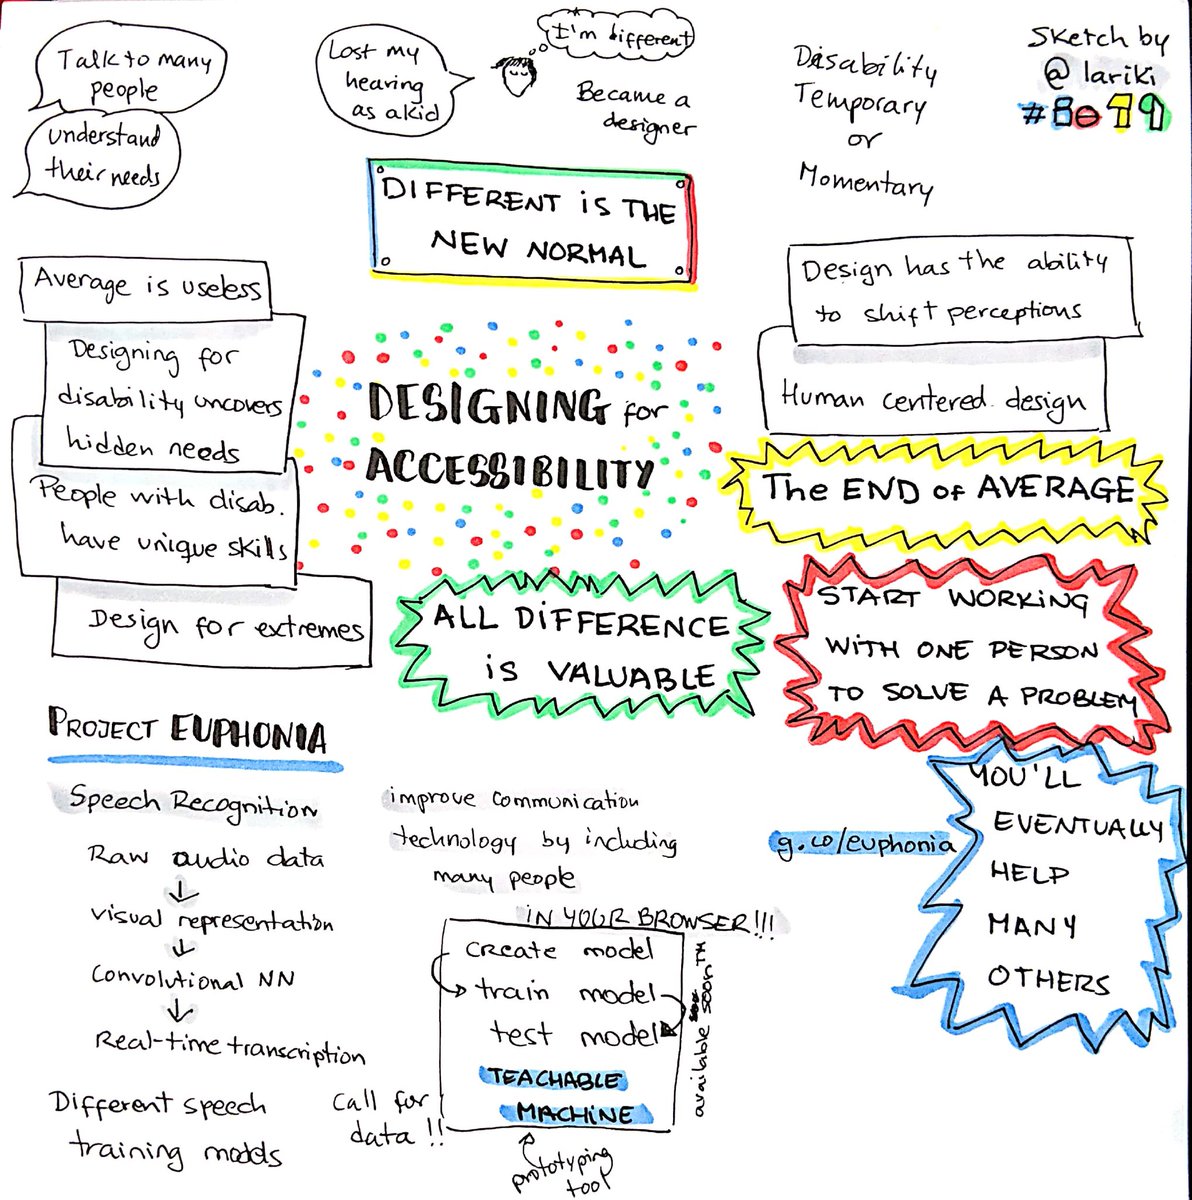 Talk to many
people
understand
their needs
Lost my
hearing
as a kid
I'm different
Became a
designer
Disability
Temporary
or
Momentary
Sketch by
@lariki
#8019
DIFFERENT is THE
NEW NORMAL
Average is useless
Designing for
disability uncovers
hidden needs
People with disab.
have unique skills
Design for extremes
DESIGNING for
ACCESSIBILITY
Design has the ability
to shift perceptions
Human centered design
The END of AVERAGE
ALL DIFFERENCE
is VALUABLE
START WORKING
WITH ONE PERSON
TO SOLVE A PROBLEM
YOU'LL
EVENTUALLY
HELP
MANY
OTHERS
PROJECT EUPHONIA
Speech Recognition
Raw audio data
↓
visual representation
↓
Convolutional NN
↓
Real-time transcription
Different speech
training models
improve communication
technology by including
many people
g.co/euphonia
IN YOUR BROWSER!!!
create model
train model
test model
TEACHABLE
MACHINE
available soon™
Call for
data!!
prototyping
tool